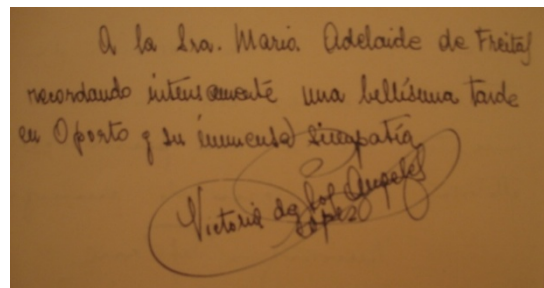 A la Sra. Maria Adelaide de Freitas
recordando intensamente una bellísima tarde
en Oporto y su inmensa simpatía
Victoria de los Angeles
López